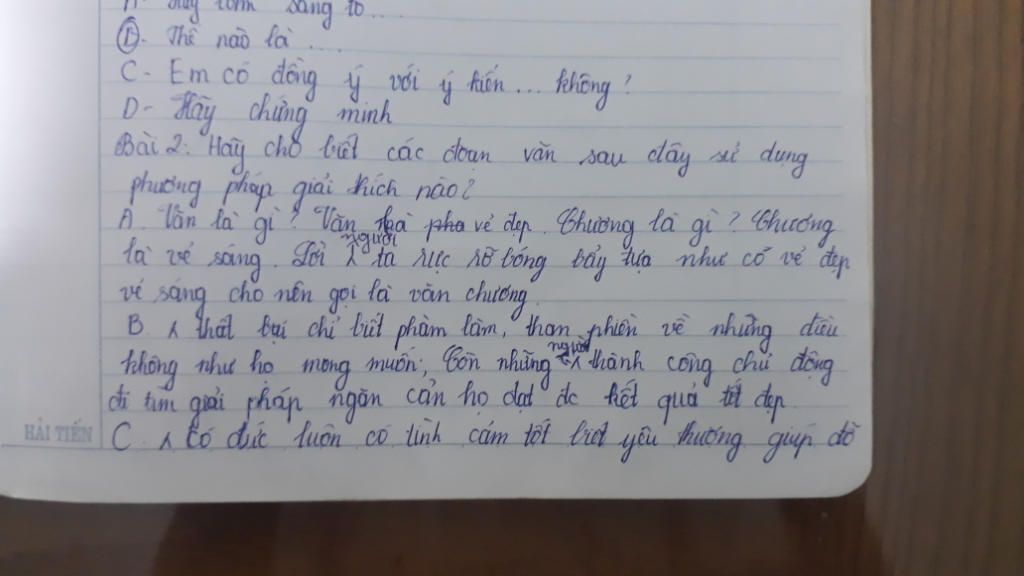 A. Hãy làm sáng tỏ...
B. Thế nào là ....
C - Em có đồng ý với ý kiến ... không?
D - Hãy chứng minh
Bài 2: Hãy cho biết các đoạn văn sau đây sử dụng
phương pháp giải thích nào?
A. Văn là gì? Văn là vẻ đẹp. Chương là gì? Chương
là vẻ sáng. Lời người ta rực rỡ bóng bẩy tựa như có vẻ đẹp
vẻ sáng cho nên gọi là văn chương.
B. ^ thất bại chỉ biết phàm làm, than phiền về những điều
không như họ mong muốn; Còn những người thành công chủ động
đi tìm giải pháp ngăn cản họ đạt đc kết quả tốt đẹp.
HẢI TIẾN C. ^ Có đức luôn có tình cảm tốt biết yêu thương giúp đỡ